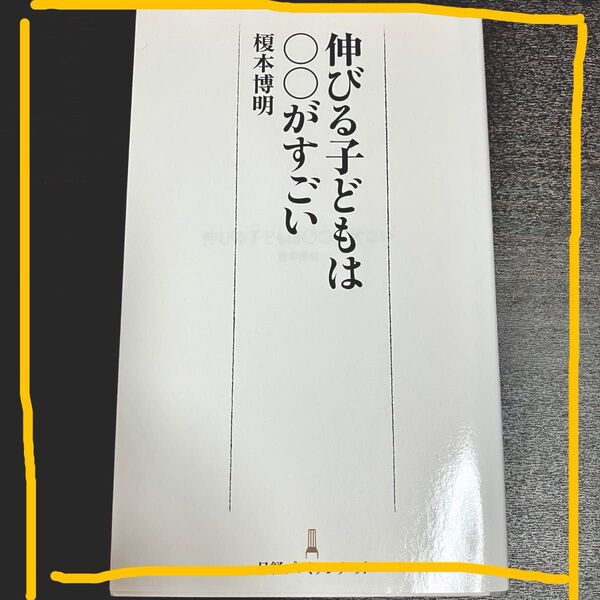 伸びる子どもは
○○がすごい
榎本博明